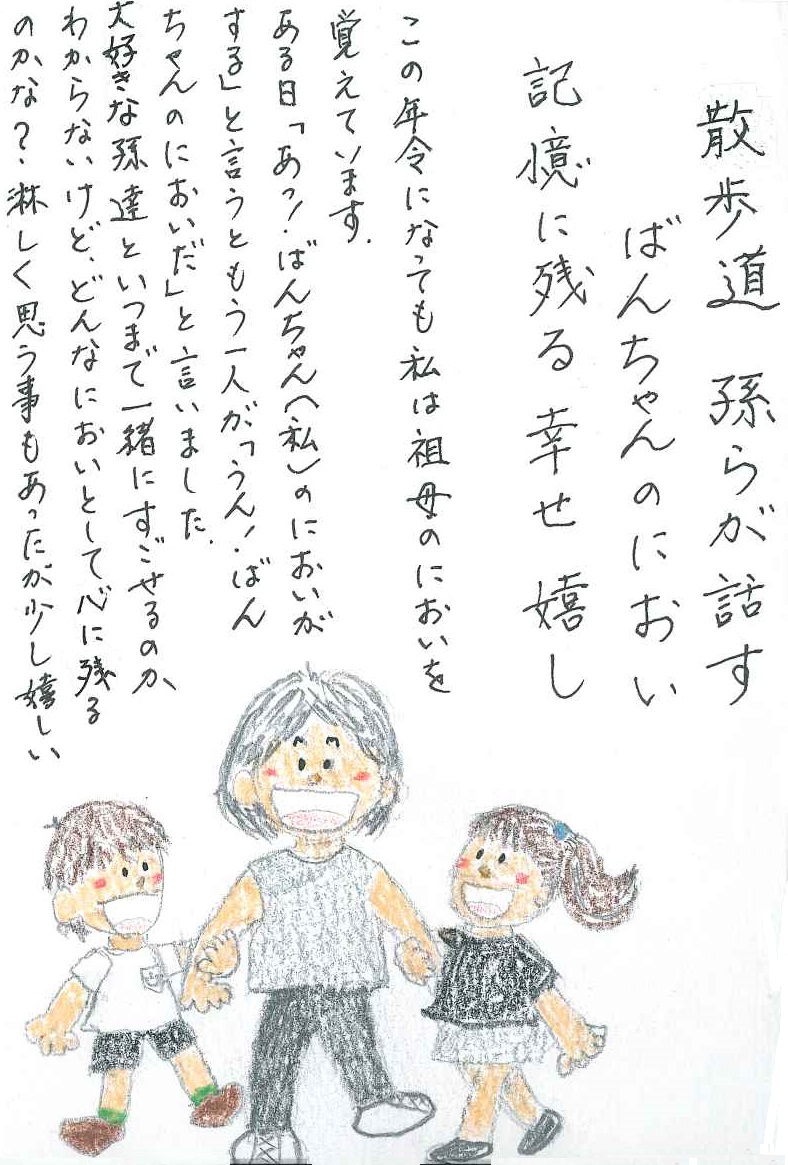 散歩道 孫らが話す
ばんちゃんのにおい
記憶に残る 幸せ 嬉し
この年令になっても私は祖母のにおいを
覚えています.
ある日「あっ!ばんちゃん(私)のにおいが
する」と言うともう一人が「うん!ばん
ちゃんのにおいだ」と言いました.
大好きな孫達といつまで一緒にすごせるのか
わからないけど、どんなにおいとして心に残る
のかな?淋しく思う事もあったが少し嬉しい